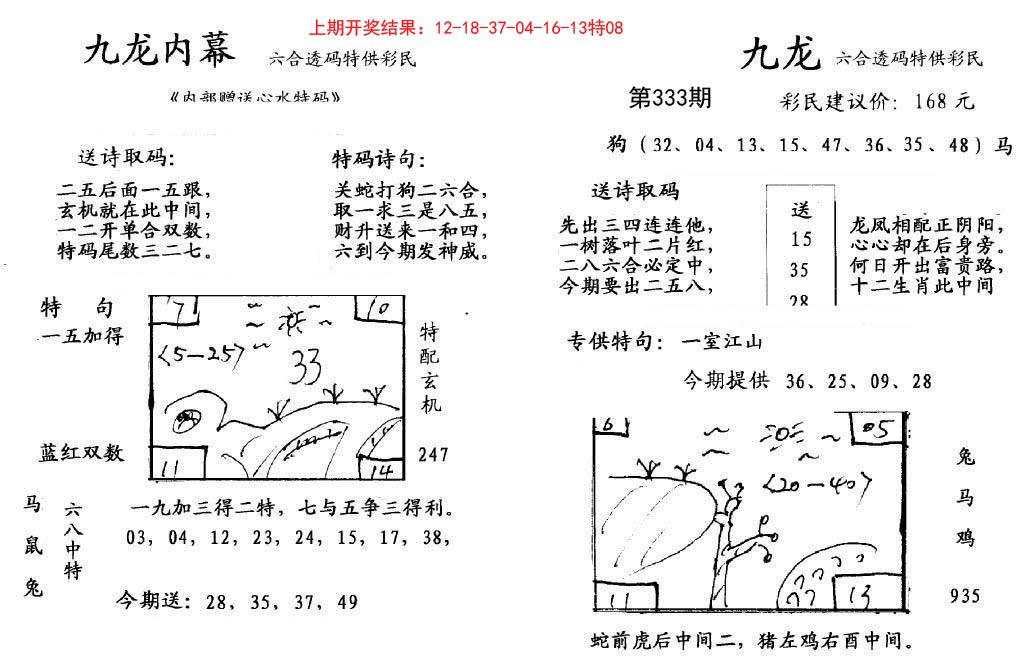 上期开奖结果：12-18-37-04-16-13特08
九龙内幕 六合透码特供彩民
《内部赠送心水特码》
送诗取码：
二五后面一五跟，
玄机就在此中间，
一二开单合双数，
特码尾数三二七。
特码诗句：
关蛇打狗二六合，
取一求三是八五，
财升送来一和四，
六到今期发神威。
特 句
一五加得
蓝红双数
17
10
〈5-25〉
33
11
14
特配玄机
247
马鼠兔
六八中特
一九加三得二特，七与五争三得利。
03，04，12，23，24，15，17，38，
今期送：28，35，37，49
九龙 六合透码特供彩民
第333期 彩民建议价：168元
狗（32、04、13、15、47、36、35、48）马
送诗取码
先出三四连连他，
一树落叶二片红，
二八六合必定中，
今期要出二五八，
送
15
35
28
龙凤相配正阴阳，
心心却在后身旁。
何日开出富贵路，
十二生肖此中间
专供特句：一室江山
今期提供 36、25、09、28
6
05
〈20-40〉
11
13
兔
马
鸡
935
蛇前虎后中间二，猪左鸡右酉中间。